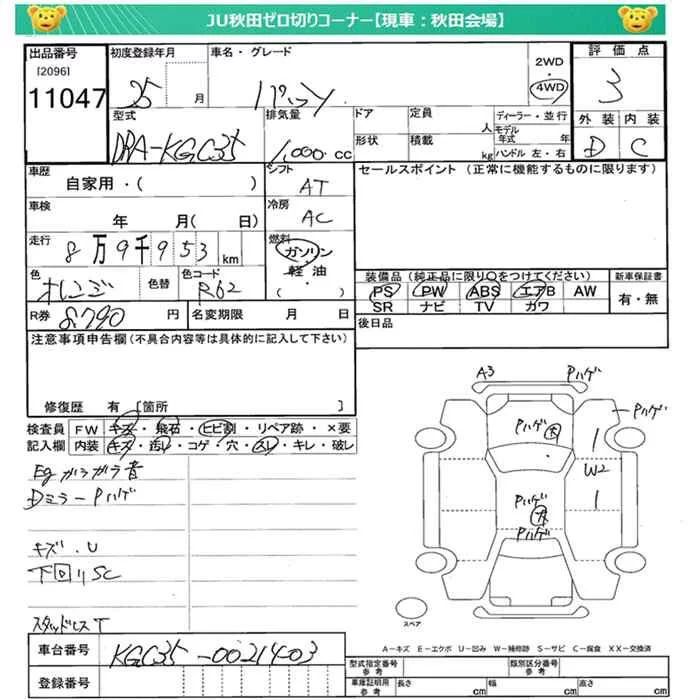 JU秋田ゼロ切りコーナー【現車：秋田会場】
出品番号 初度登録年月 車名・グレード 2WD ・ 4WD 評価点
[2096]
11047 25 月 パッソ 3
型式 排気量 ドア 定員 人 ディーラー・並行 外装 内装
DBA-KGC35 1,000 cc 形状 積載 kg モデル年式 年 ハンドル 左・右 D C
車歴 シフト セールスポイント (正常に機能するものに限ります)
自家用・( ) AT
車検 冷房
年 月( 日) AC
走行 燃料
8万9千953 km ガソリン・軽油 ( )
色 色替 色コード 装備品 (純正品に限り○をつけてください) 新車保証書
オレンジ R62 PS PW ABS エアB AW 有・無
SR ナビ TV カワ
R券 8790 円 名変期限 月 日 後日品
注意事項申告欄(不具合内容等は具体的に記入して下さい)
修復歴 有 [箇所 ]
検査員 FW キズ・飛石・ヒビ割・リペア跡・×要
記入欄 内装 キズ・汚レ・コゲ・穴・スレ・キレ・破レ
Eg ガラガラ音
Dミラー Pハゲ
キズ・U
下回りSC
スタッドレスT
A3 Pハゲ
Pハゲ
Pハゲ 大
W2
Pハゲ
大
Pハゲ
スペア
A－キズ E－エクボ U－凹み W－補修跡 S－サビ C－腐食 XX－交換済
車台番号 KGC35-0021403
登録番号
型式指定番号 参考 類別区分番号 参考
車庫証明用 参考 長さ cm 幅 cm 高さ cm